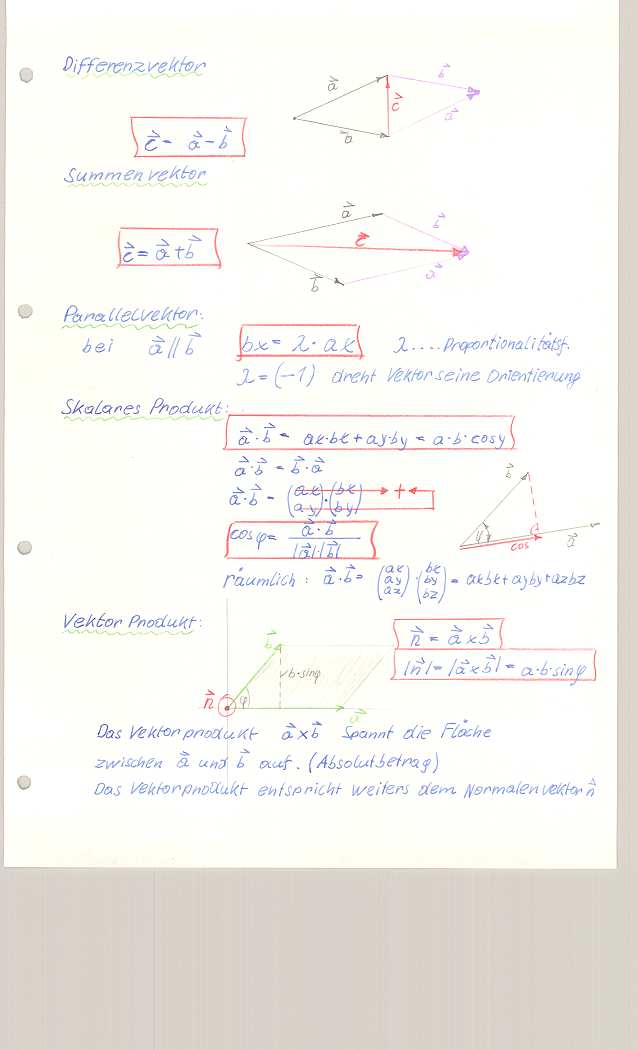 Differenzvektor
a⃗
b⃗
c⃗
a⃗
a
c⃗ = a⃗ - b⃗
Summenvektor
a⃗
b⃗
c⃗
c⃗ = a⃗ + b⃗
b⃗
a⃗
Parallelvektor:
bei a⃗ // b⃗ bx = λ · ax λ.... Proportionalitätsf.
λ = (-1) dreht Vektor seine Orientierung
Skalares Produkt:
a⃗ · b⃗ = ax·bx + ay·by = a·b·cosφ
a⃗ · b⃗ = b⃗ · a⃗
a⃗ · b⃗ = (ax ay) · (bx by) +
b⃗
φ
cos
a⃗
cosφ = a⃗ · b⃗ / |a⃗|·|b⃗|
räumlich: a⃗ · b⃗ = (ax ay az) · (bx by bz) = axbx + ayby + azbz
Vektor Produkt:
n⃗ = a⃗ x b⃗
|n⃗| = |a⃗ x b⃗| = a·b·sinφ
b⃗
b·sinφ
n⃗
φ
a⃗
Das Vektorprodukt a⃗ x b⃗ spannt die Fläche
zwischen a⃗ und b⃗ auf. (Absolutbetrag)
Das Vektorprodukt entspricht weiters dem Normalenvektor n⃗